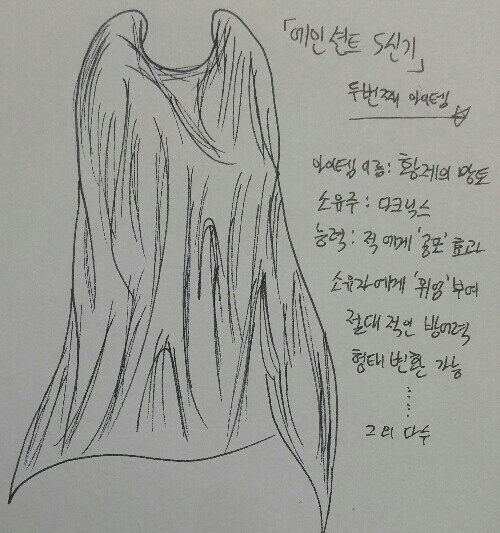 「에인션트 5신기」
두번째 아이템
아이템 이름: 황제의 망토
소유주: 다크닉스
능력: 적에게 '공포' 효과
소유자에게 '위엄' 부여
절대적인 방어력
형태변환 가능
......
그 외 다수